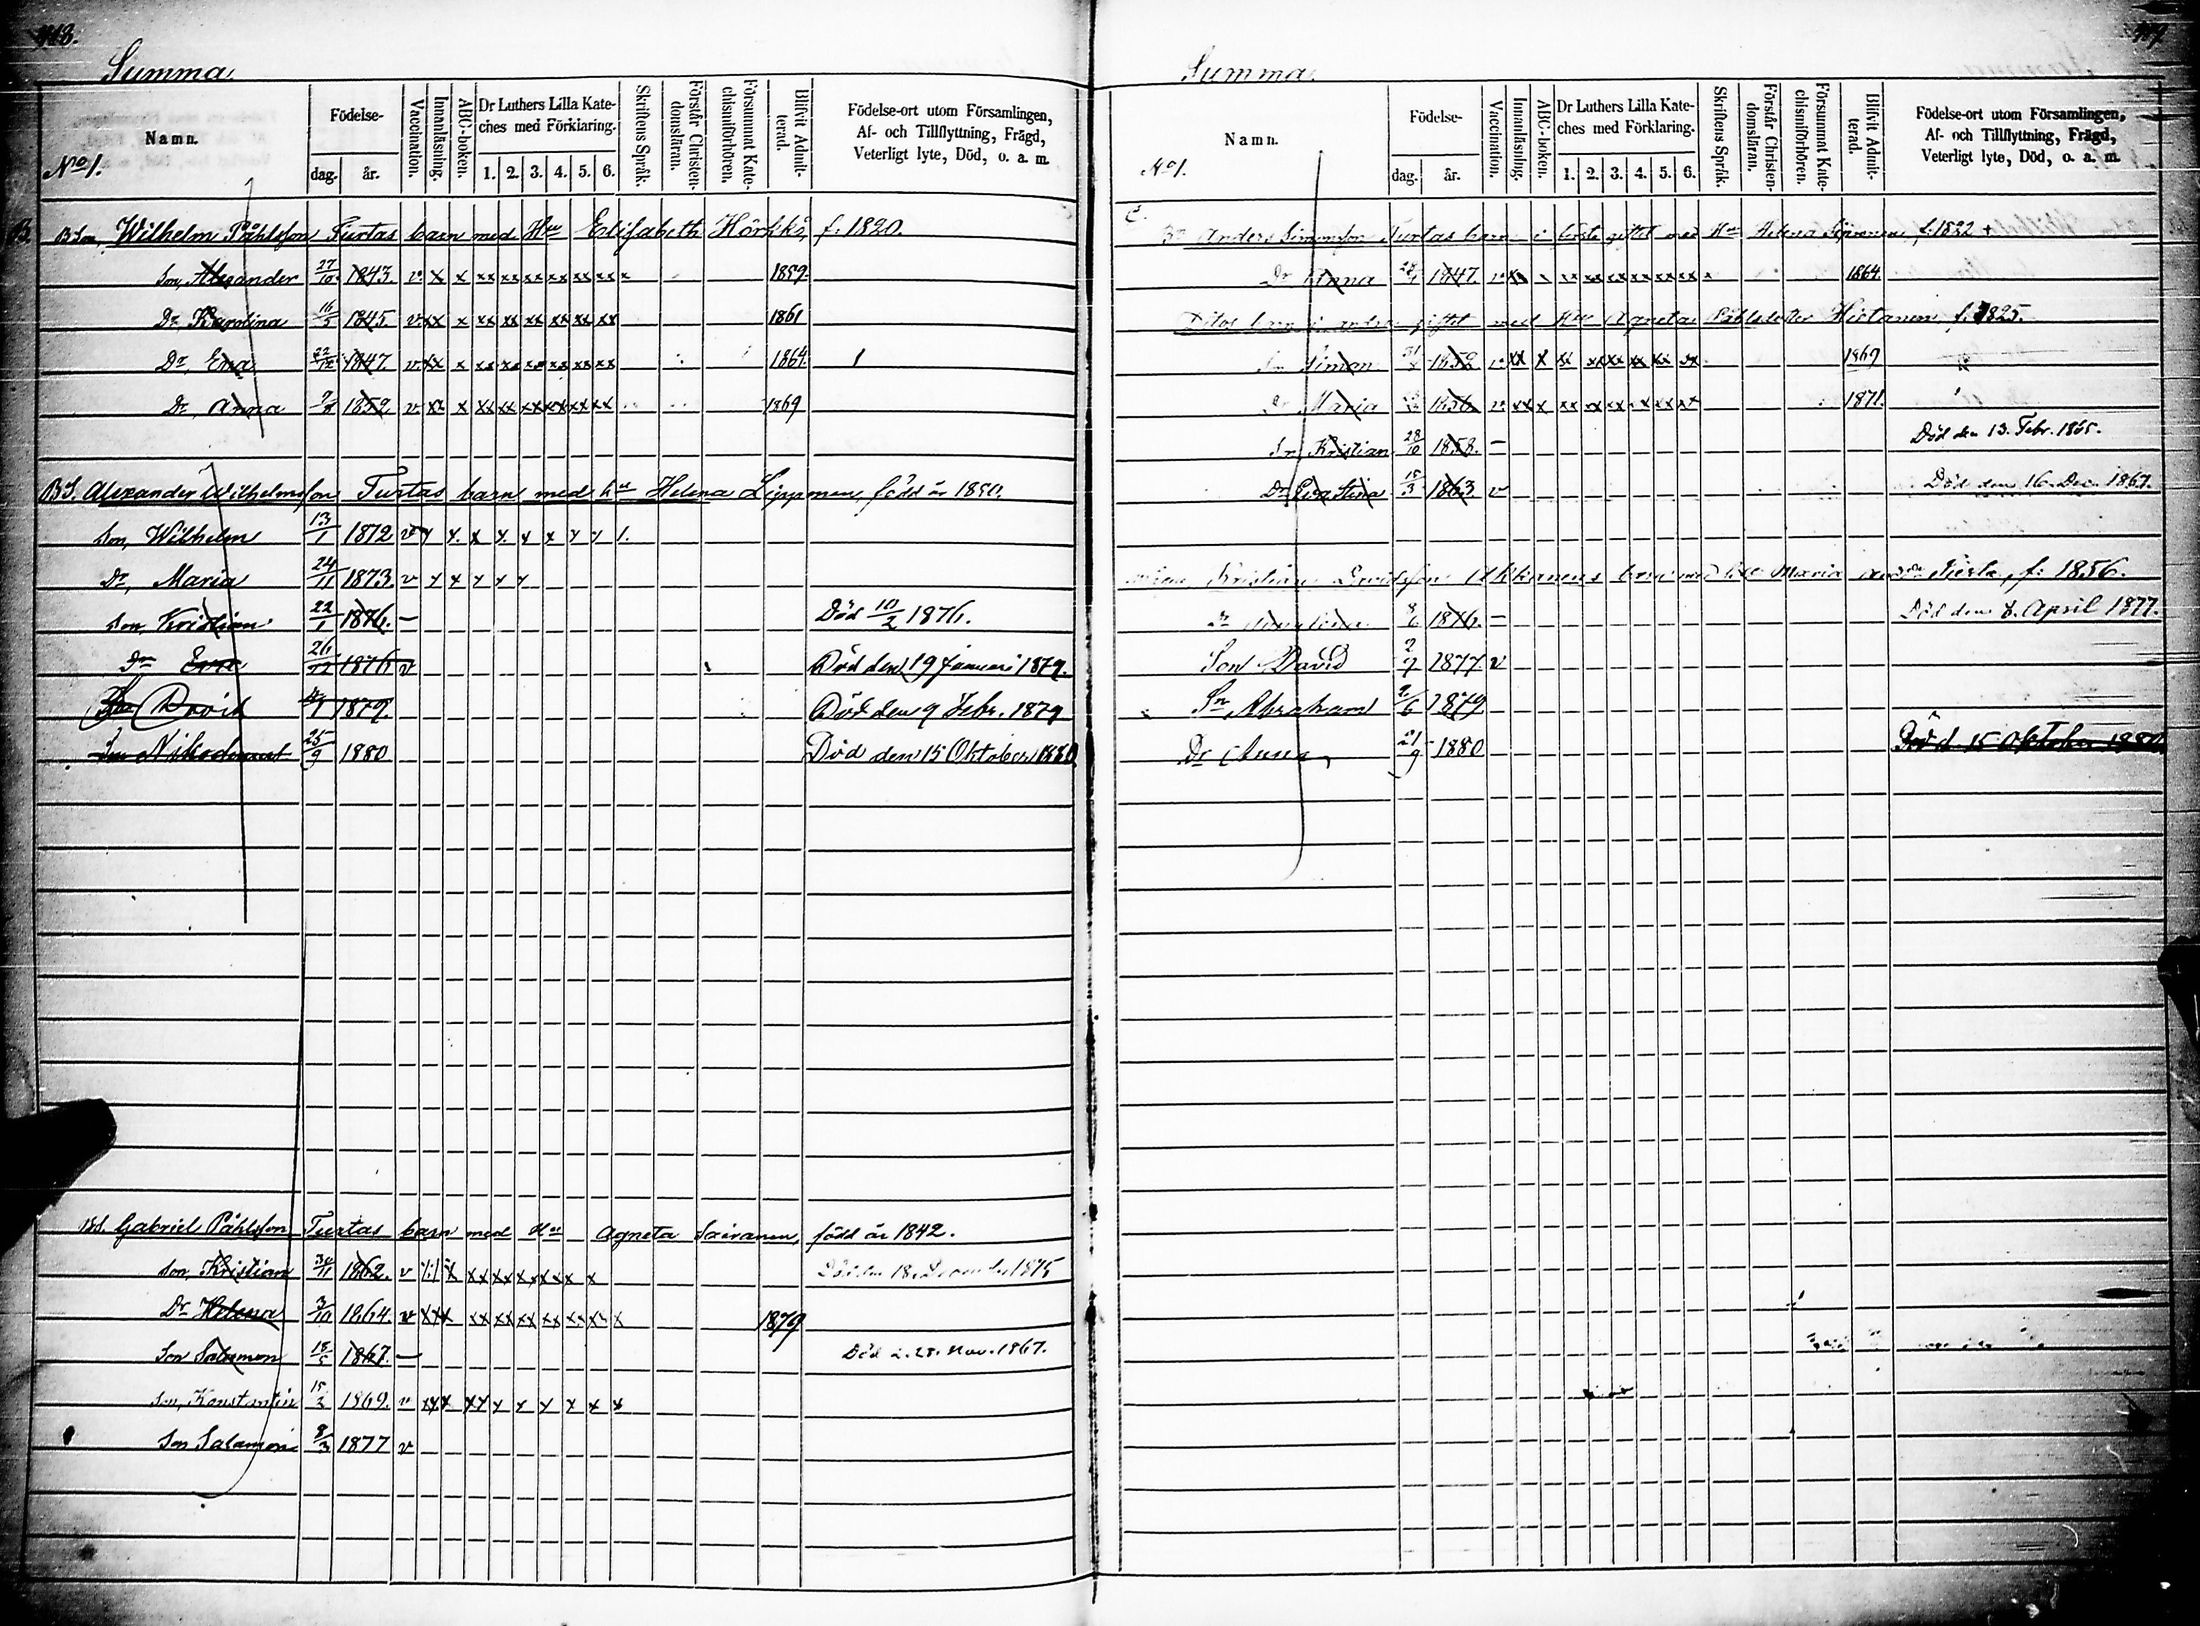 Summa
Namn.
No 1.
Födelse-
dag.
år.
Vaccination.
Innanläsning.
ABC-boken.
Dr Luthers Lilla Kate-
ches med Förklaring.
1. 2. 3. 4. 5. 6.
Skriftens Språk.
Förstår Christen-
domsläran.
Försummat Kate-
chismiförhören.
Blifvit Admit-
terad.
Födelse-ort utom Församlingen,
Af- och Tillflyttning, Frägd,
Veterligt lyte, Död, o. a. m.
B. Wilhelm Påhlsson Turtas barn med Hu Elisabeth f. 1820.
Son, Alexander 27/10 1843. v x x xx xx xx xx xx xx x 1859.
Dr Karolina 16/5 1845. v xx x xx xx xx xx xx xx 1861
Dr, Eva 1847. v xx x xx xx xx xx xx xx 1864.
Dr, Anna 1852 v xx x xx xx xx xx xx xx 1869
BS. Alexander Wilhelmsson Turtas barn med hu Helena född år 1850.
Son, Wilhelm 13/1 1872 v x x x x x x x x 1.
Dr, Maria 24/11 1873 v x x x x x
Son, Kristian 22/1 1876. — Död 10/2 1876.
Dr Eva 26/12 1876 v Död den 19 Januari 1879.
David 1879. Död den 9 Febr. 1879
Son Nikodemus 25/9 1880 Död den 15 Oktober 1880
BS. Gabriel Påhlsson Turtas barn med Hu Agneta Sairanen, född år 1842.
Son, Kristian 30/11 1862. v xx xx xx xx x x 1875
Dr Helena 3/10 1864. v xxx xx xx xx xx xx xx x 1879
Son Salamon 18/5 1867. — Död d. 28. Nov. 1867.
Son, Konstantin 15/2 1869. v xxx xx x x x x x x
Son Salamon 8/3 1877 v
Summa
Namn.
No 1.
Födelse-
dag.
år.
Vaccination.
Innanläsning.
ABC-boken.
Dr Luthers Lilla Kate-
ches med Förklaring.
1. 2. 3. 4. 5. 6.
Skriftens Språk.
Förstår Christen-
domsläran.
Försummat Kate-
chismiförhören.
Blifvit Admit-
terad.
Födelse-ort utom Församlingen,
Af- och Tillflyttning, Frägd,
Veterligt lyte, Död, o. a. m.
C.
Anders Simonsson Turtas barn i första giftet med Hu Helena f. 1822 +
Dr Anna 1847. 1864.
Ditos barn i andra giftet med Hu Agneta Påhlsdotter Hietanen, f. 1825.
Sn Simon 1852 xx x xx xx xx xx xx xx 1869
Dr Maria 1856 v xx x xx xx xx x xx xx 1871.
Sn, Kristian 28/10 1858. — Död den 13. Febr. 1865.
Dr Eva Stina 18/3 1863 v Död den 16. Dec. 1867.
Kristian barn med Maria f: 1856.
Dr 1876. — Död den 8. April 1877.
Son David 2/7 1877 v
Sn Abraham 2/6 1879
Dr Anna 21/9 1880 Död d. 15 Oktober 1880